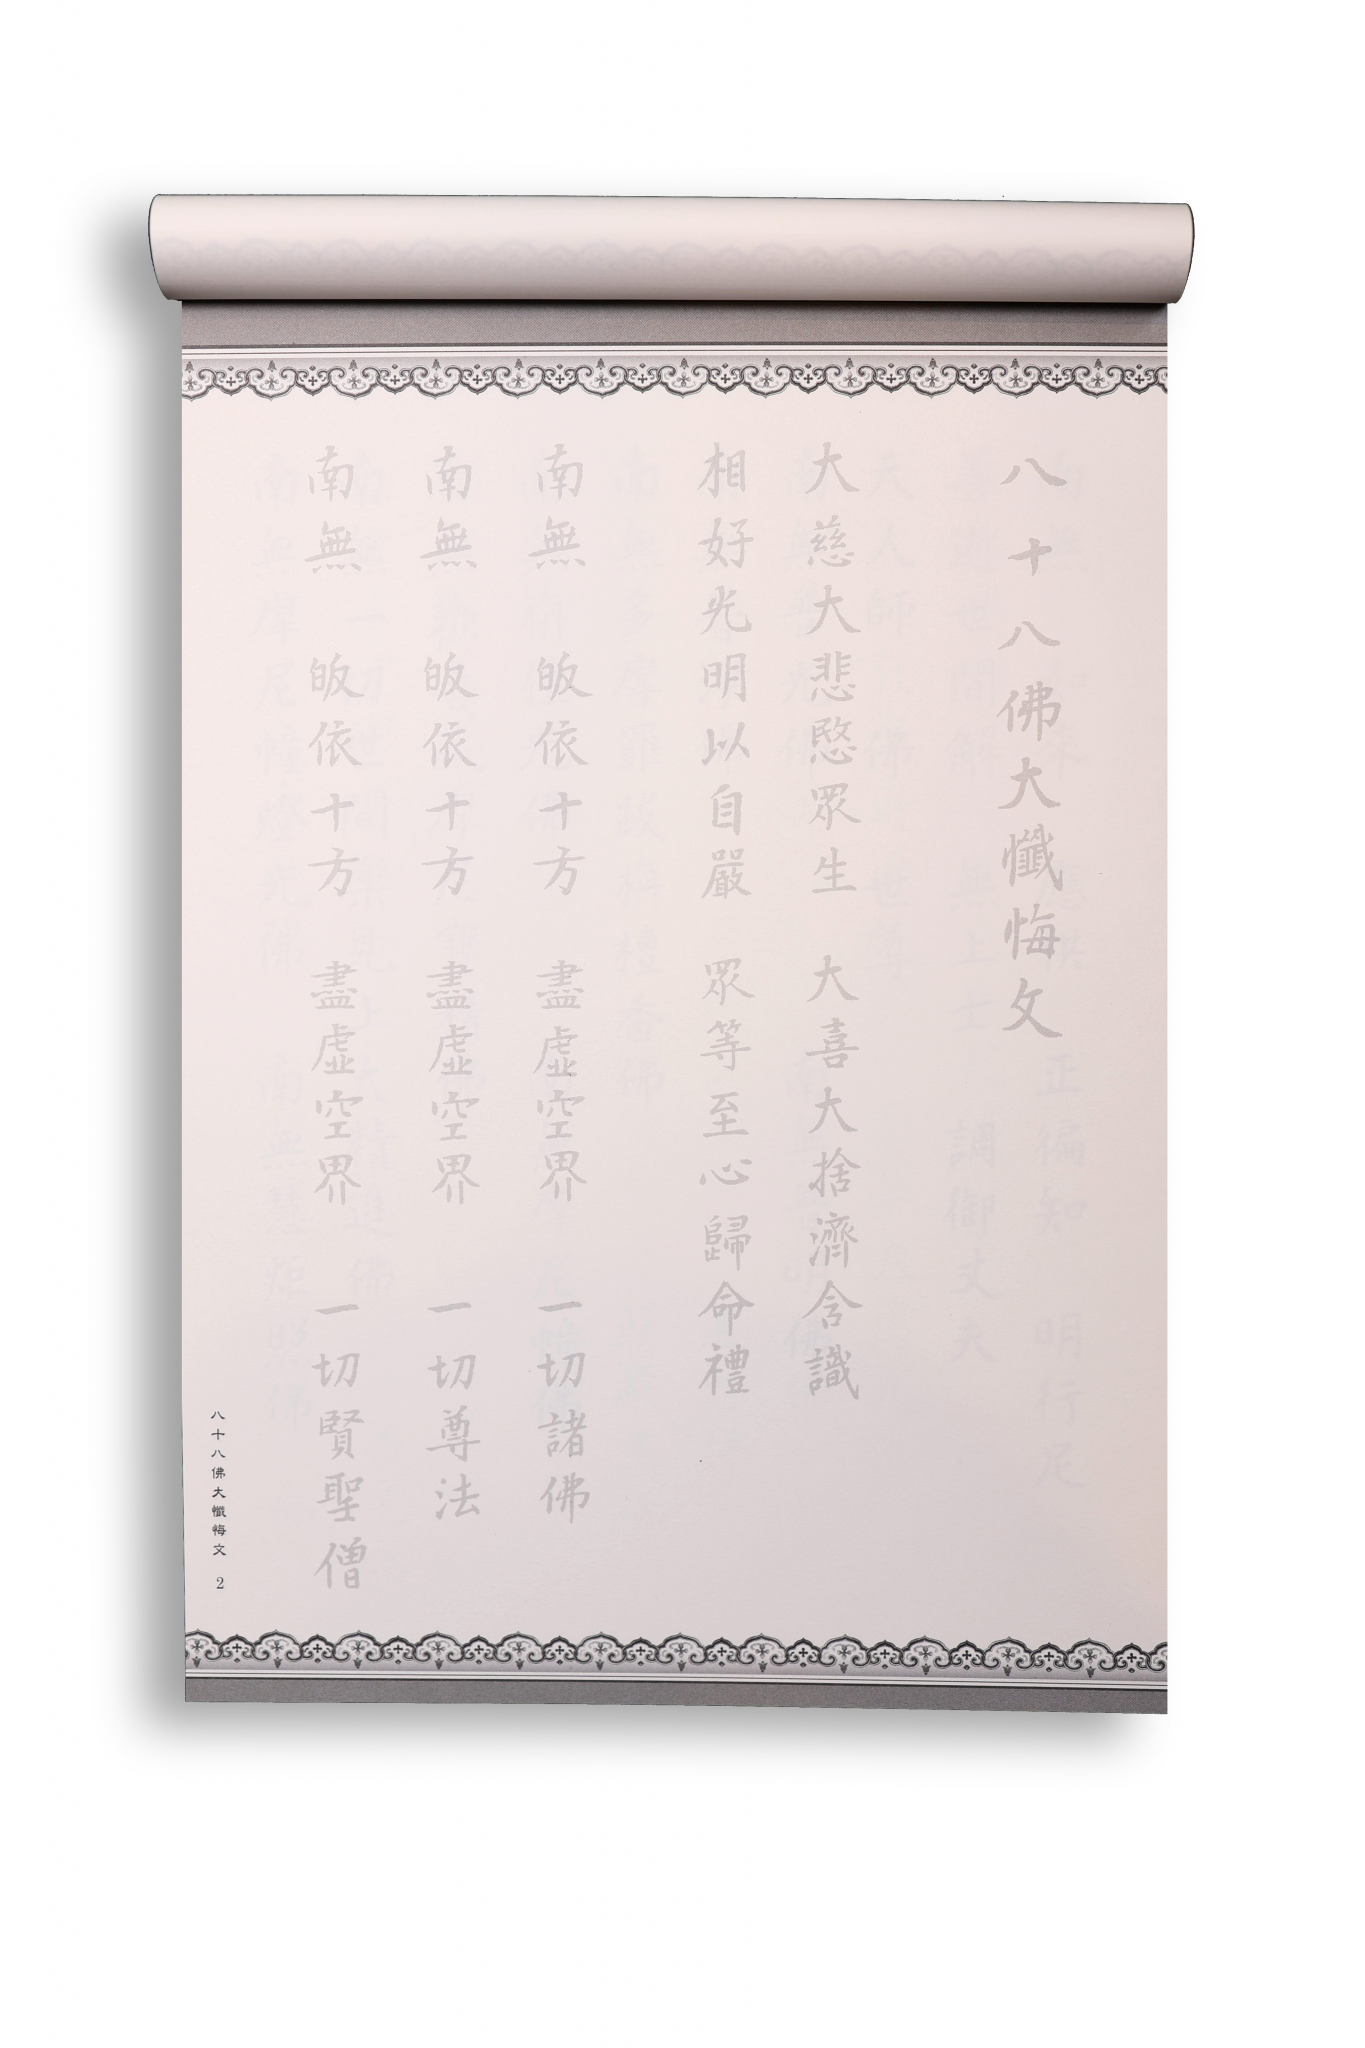 八十八佛大懺悔文
大慈大悲愍眾生 大喜大捨濟含識
相好光明以自嚴 眾等至心歸命禮
南無 皈依十方 盡虛空界 一切諸佛
南無 皈依十方 盡虛空界 一切尊法
南無 皈依十方 盡虛空界 一切賢聖僧
八十八佛大懺悔文 2